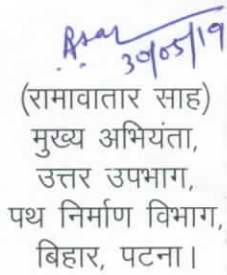 30/05/19
(रामावतार साह)
मुख्य अभियंता,
उत्तर उपभाग,
पथ निर्माण विभाग,
बिहार, पटना।